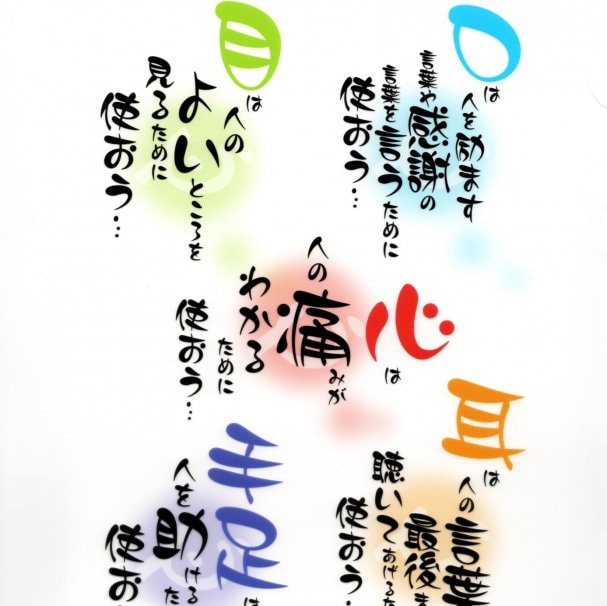 口は
人を励ます
言葉や感謝の
言葉を言うために
使おう…
目は
人の
よいところを
見るために
使おう…
心は
人の痛みが
わかるために
使おう…
耳は
人の言葉
最後ま
聴いてあげるた
使おう
手足は
人を助けるた
使おう